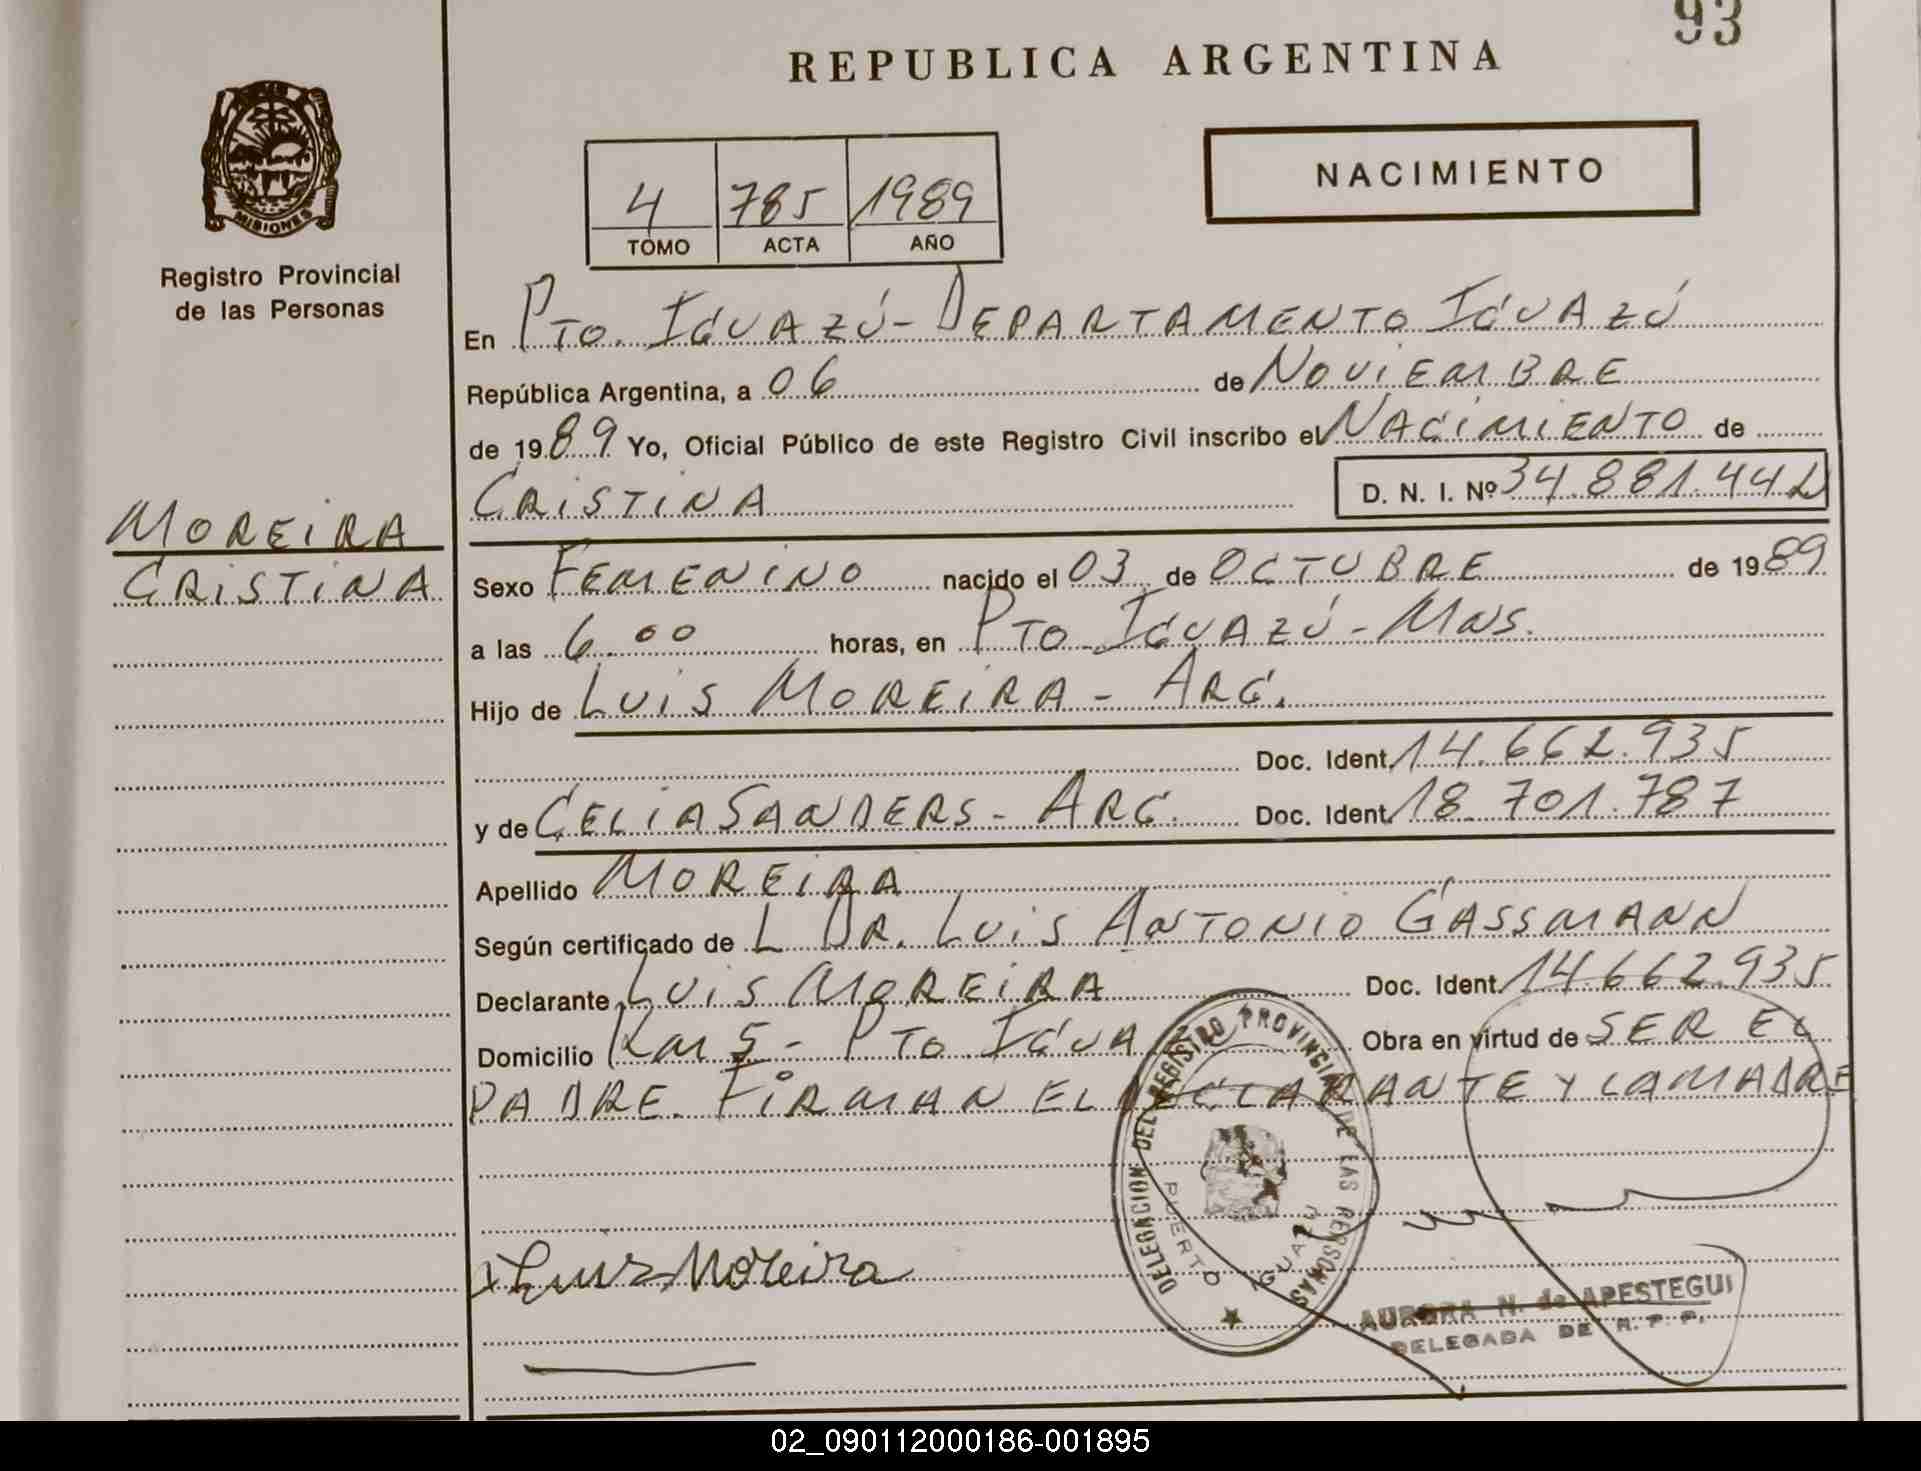 93
REPUBLICA ARGENTINA
MISIONES
Registro Provincial
de las Personas
4 785 1989
TOMO ACTA AÑO
NACIMIENTO
En Pto. Iguazú - Departamento Iguazú
República Argentina, a 06 de Noviembre
de 1989 Yo, Oficial Público de este Registro Civil inscribo el Nacimiento de
Cristina D. N. I. Nº 34.881.442
Moreira
Cristina
Sexo Femenino nacido el 03 de Octubre de 1989
a las 6.00 horas, en Pto Iguazú - Mns.
Hijo de Luis Moreira - Arg.
Doc. Ident. 14.662.935
y de Celia Sanders - Arg. Doc. Ident. 18.701.787
Apellido Moreira
Según certificado de L Dr. Luis Antonio Gassmann
Declarante Luis Moreira Doc. Ident. 14.662.935
Domicilio Km 5 - Pto Igua Obra en virtud de ser el
padre. Firman el declarante y la madre
DELEGACION DEL REGISTRO PROVINCIAL DE LAS PERSONAS
PUERTO IGUAZU
Luis Moreira
AURORA N. de APESTEGUI
DELEGADA DE R. P. P.
02_090112000186-001895